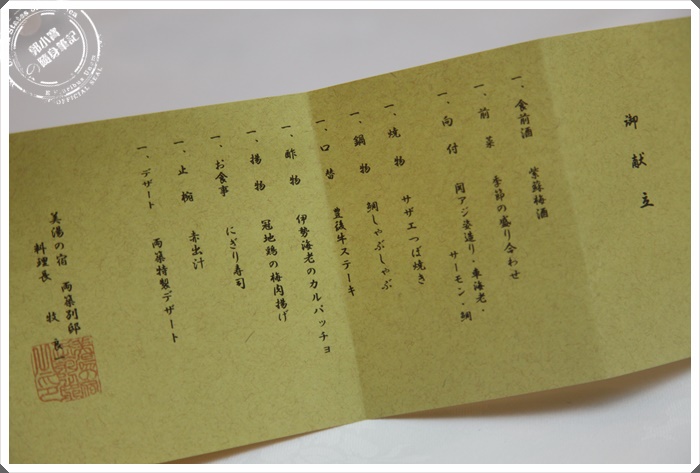 御献立
一、食前酒 紫蘇梅酒
一、前菜 季節の盛り合わせ
一、向付 関アジ姿造り・車海老・
サーモン・鯛
一、焼物 サザエつぼ焼き
一、鍋物 鯛しゃぶしゃぶ
一、口替 豊後牛ステーキ
一、酢物 伊勢海老のカルパッチョ
一、揚物 冠地鶏の梅肉揚げ
一、お食事 にぎり寿司
一、止椀 赤出汁
一、デザート 両築特製デザート
美湯の宿 両築別邸
料理長 牧 良一
郭小醬
の隨身筆記
OFFICIAL SEAL